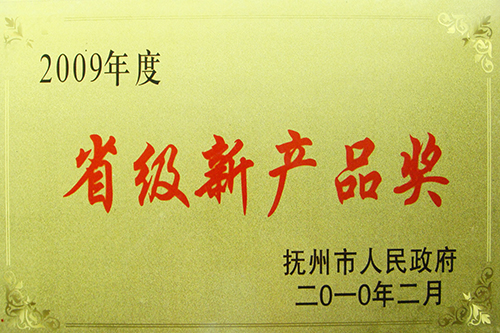 2009年度
省级新产品奖
抚州市人民政府
二0一0年二月